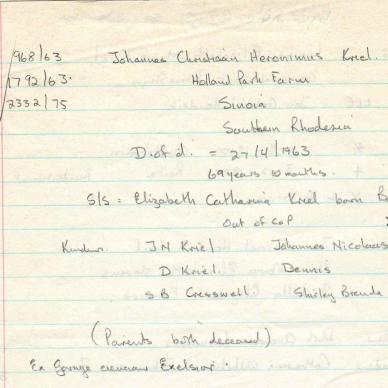 968/63 Johannes Christiaan Heronimus Kriel.
1792/63. Holland Park Farm
2332/75 Sinoia
Southern Rhodesia
D. of d. = 27/4/1963
69 years 10 months.
S/S = Elizabeth Catharina Kriel born B
Out of CoP
J N Kriel Johannes Nicolaas
D Kriel Dennis
S B Cresswell Shirley Brenda
(Parents both deceased)
Ex Garage Excelsior.